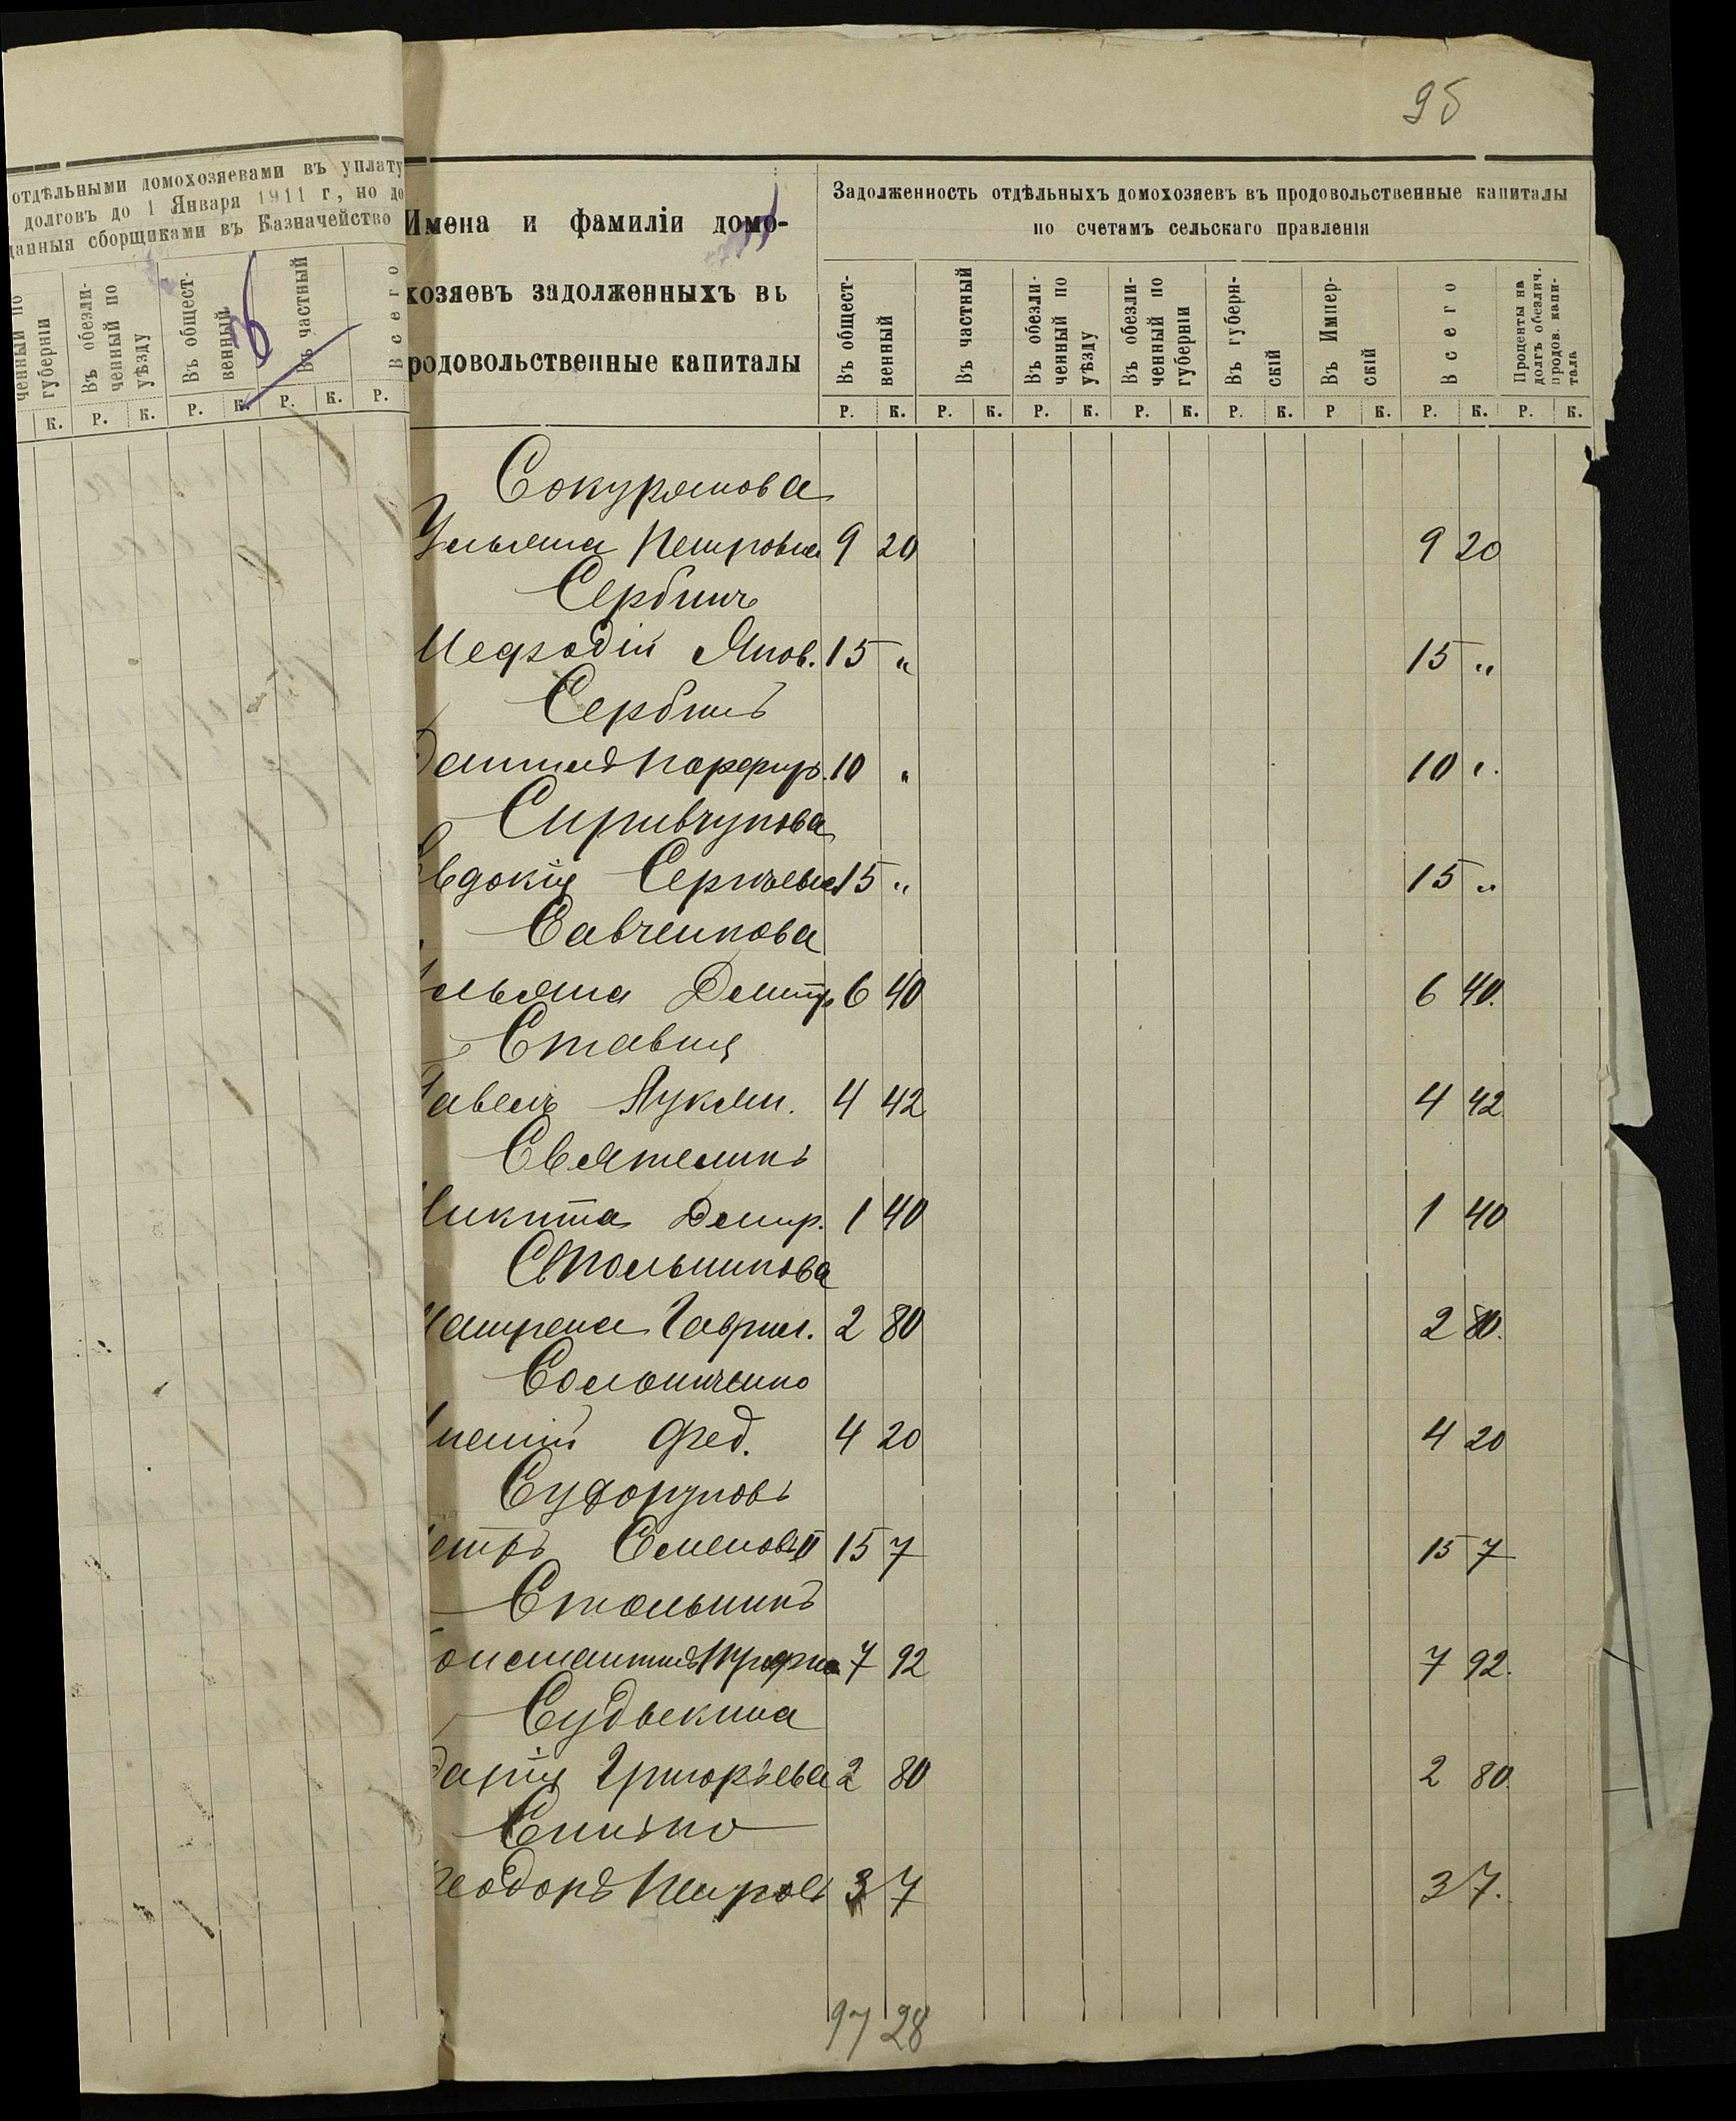 95
отдѣльными домохозяевами въ уплату
долговъ до 1 Января 1911 г, но до
данныя сборщиками въ Казначейство
ченный по губерніи
Въ обезли-ченный по уѣзду
Въ общест-венный
Въ частный
Всего
К. Р. К. Р. К. Р. К. Р.
Имена и фамиліи домо-
хозяевъ задолженныхъ въ
родовольственные капиталы
Задолженность отдѣльныхъ домохозяевъ въ продовольственные капиталы
по счетамъ сельскаго правленія
Въ общест-венный
Въ частный
Въ обезли-ченный по уѣзду
Въ обезли-ченный по губерніи
Въ губерн-скій
Въ Импер-скій
Всего
Проценты на долгъ обезлич. продов. капи-тала
Р. К. Р. К. Р. К. Р. К. Р. К. Р К. Р. К. Р. К.
Сокурянова
Ульяна Петровна 9 20 9 20
Сербинъ
Мефодій Яков. 15 „ 15 „
Сербинъ
Даніилъ Порфир. 10 „ 10 „
Спривчукова
Евдокія Сергѣева 15 „ 15 „
Савченкова
Ульяна Дмитр 6 40 6 40.
Ставня
Павелъ Лукян. 4 42 4 42.
Святеликъ
Никита Демир. 1 40 1 40
Стольникова
Матрена Гаврил. 2 80 2 80.
Солониченко
Игнатій Фед. 4 20 4 20
Сухоруковъ
Петръ Семеновъ II 15 7 15 7
Стольникъ
Константинъ 7 92 7 92.
Судьекина
Дарія Григорьева 2 80 2 80
Снитко
Феодоръ Петровъ 3 7 3 7.
97 28